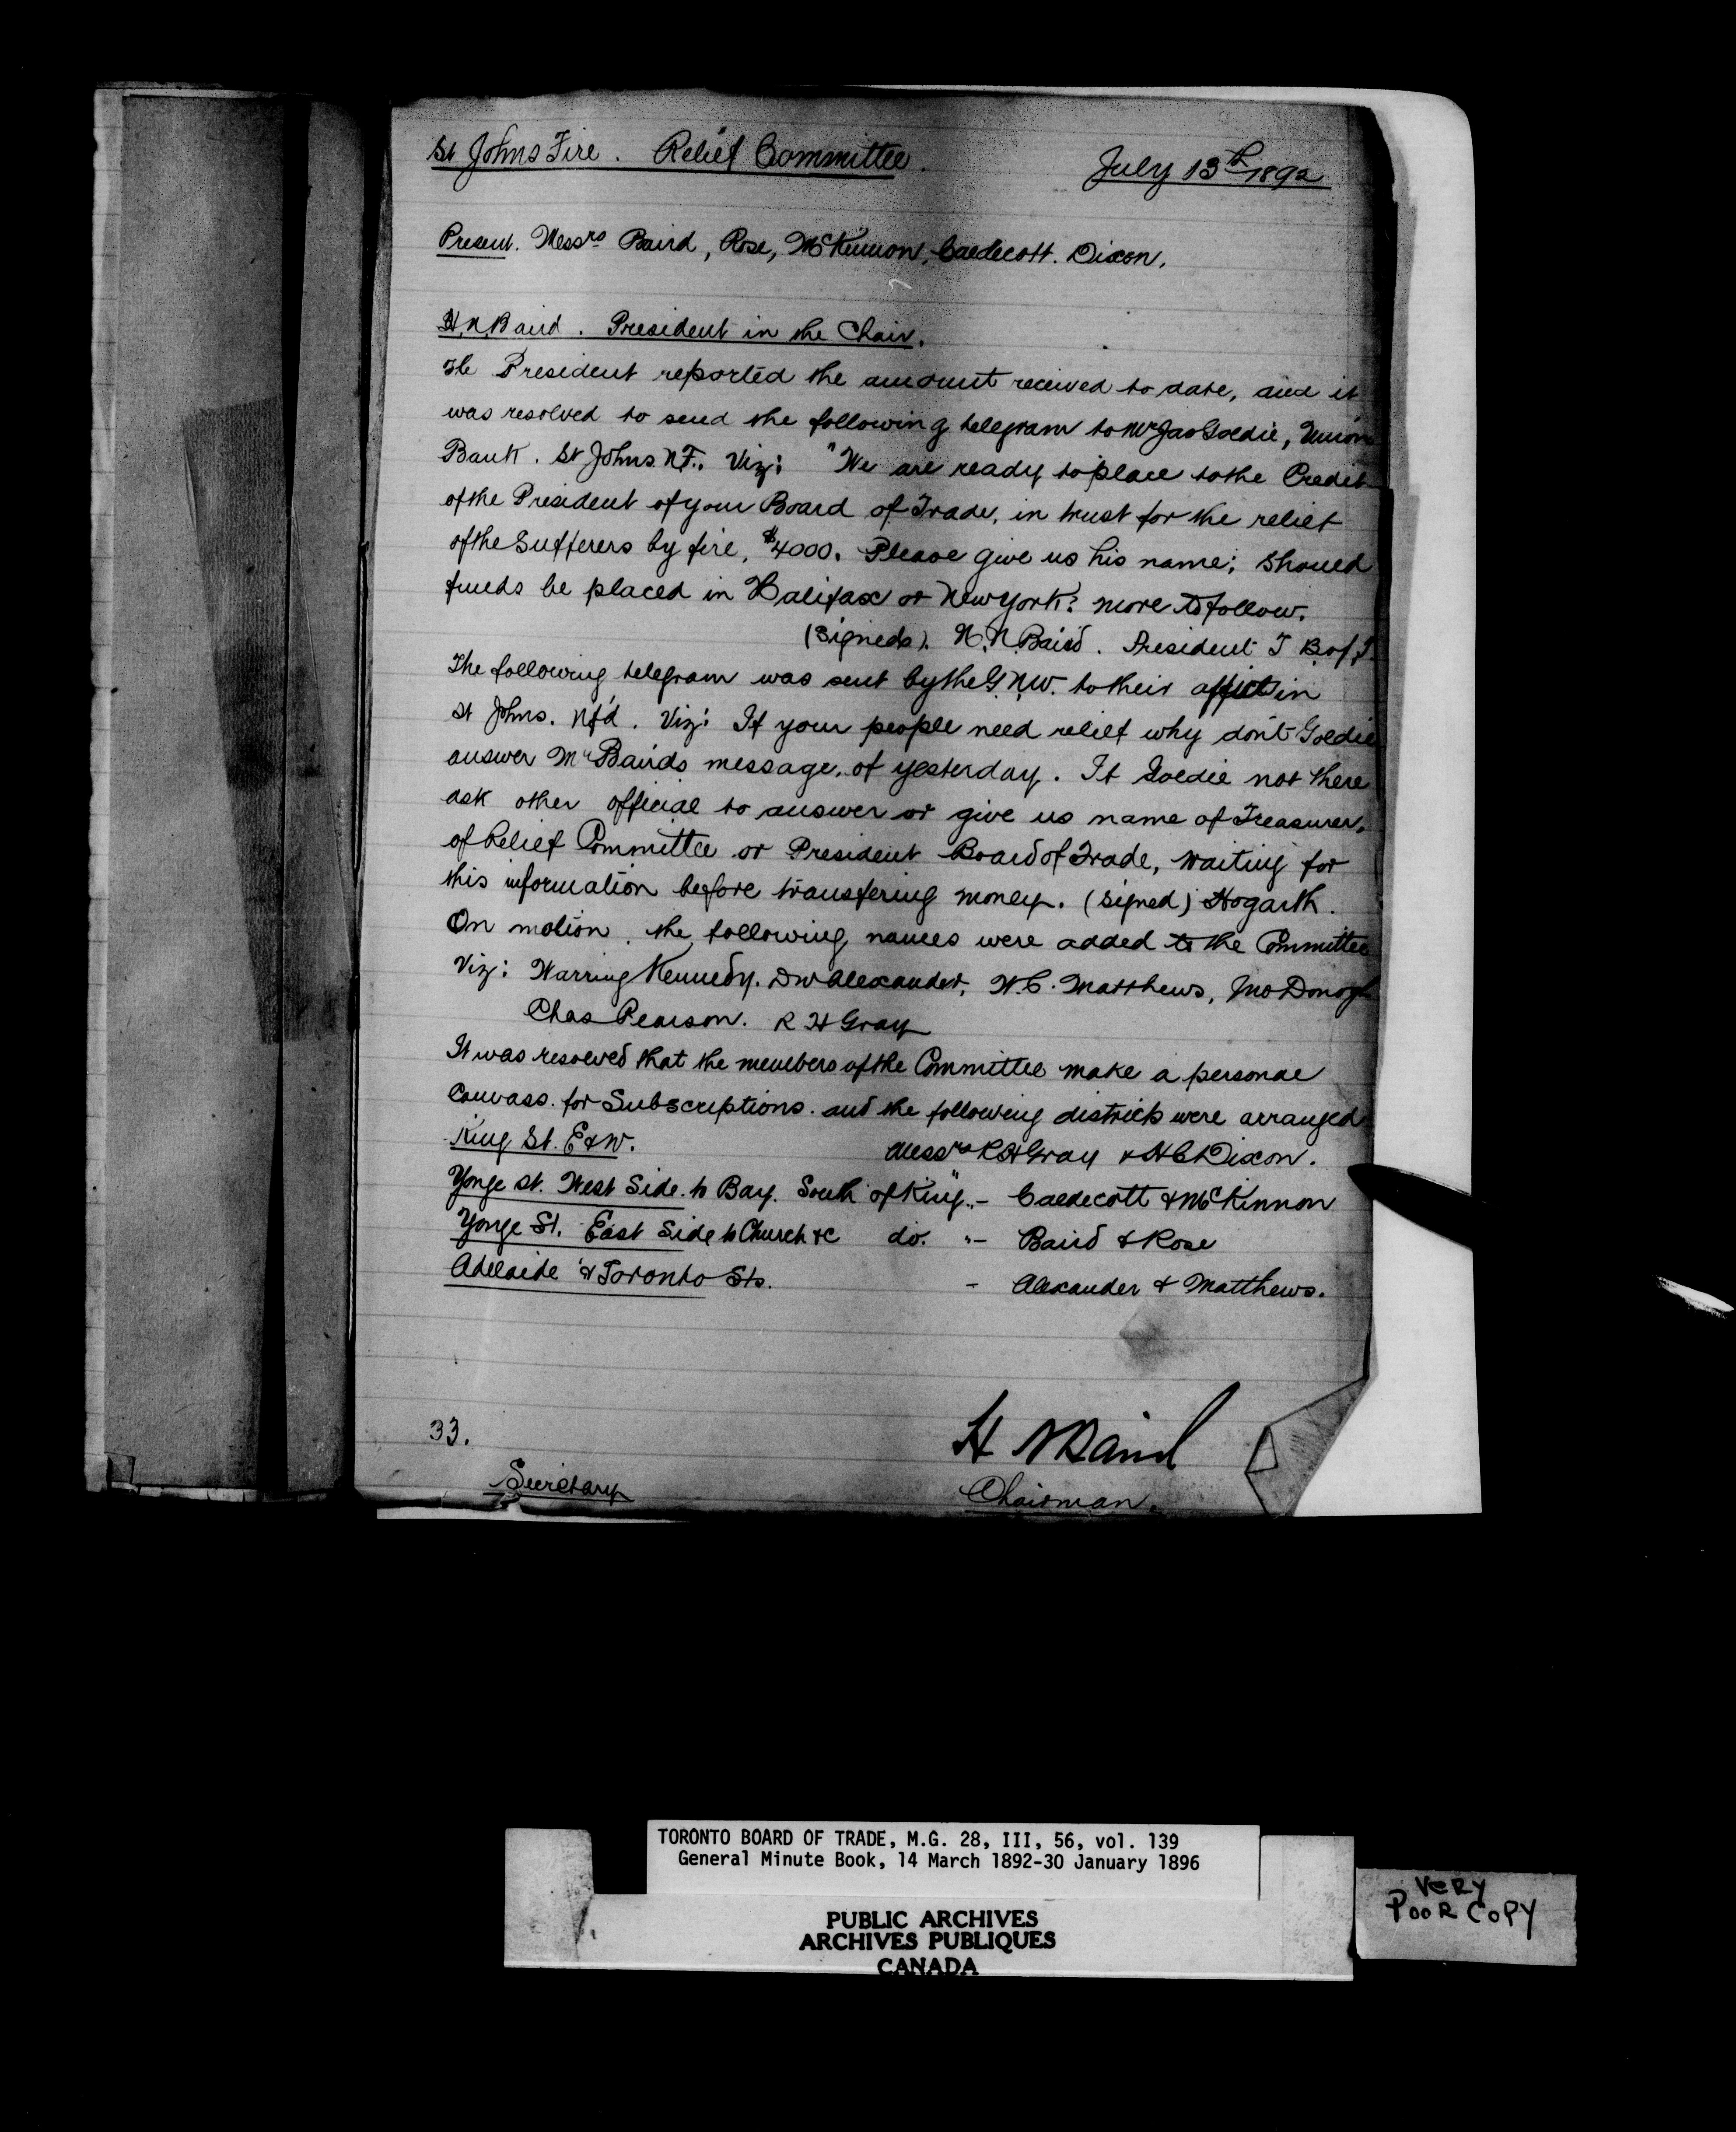 St Johns Fire. Relief Committee.
July 13th 1892
Present. Messrs Baird, Rose, McKinnon, Caldecott. Dixon.
H.N.Baird. President in the Chair.
The President reported the amount received to date, and it
was resolved to send the following telegram to Mr Jas Goldie, Union
Bank. St Johns N.F., Viz: "We are ready to place to the Credit
of the President of your Board of Trade, in trust for the relief
of the Sufferers by fire, $4000. Please give us his name; should
funds be placed in Halifax or New York? more to follow.
(Signed). H.N.Baird. President T B of T.
The following telegram was sent by the G.N.W. to their office in
St Johns. Nf'd. Viz: If your people need relief why don't Goldie
answer Mr Bairds message, of yesterday. If Goldie not there
ask other official to answer or give us name of Treasurer,
of Relief Committee or President Board of Trade, waiting for
this information before transfering money. (signed) Hogarth.
On motion, the following names were added to the Committee
Viz: Warring Kennedy. DW Alexander, W.C. Matthews, Jno Donogh
Chas Pearson. R H Gray
It was resolved that the members of the Committee make a personal
Canvass. for Subscriptions. and the following districts were arranged
King St. E & W. Messrs R H Gray & H C Dixon.
Yonge St. West Side. to Bay. South of King. - Caldecott & McKinnon
Yonge St. East Side to Church &c do. "- Baird & Rose
Adelaide & Toronto Sts. - Alexander & Matthews.
33.
H N Baird
Secretary
Chairman.
TORONTO BOARD OF TRADE, M.G. 28, III, 56, vol. 139
General Minute Book, 14 March 1892-30 January 1896
PUBLIC ARCHIVES
ARCHIVES PUBLIQUES
CANADA
VERY
POOR COPY